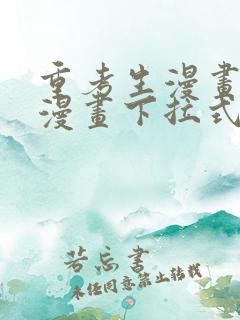 重考生漫畫
漫畫下拉式
若忘書
未经同意禁止转载